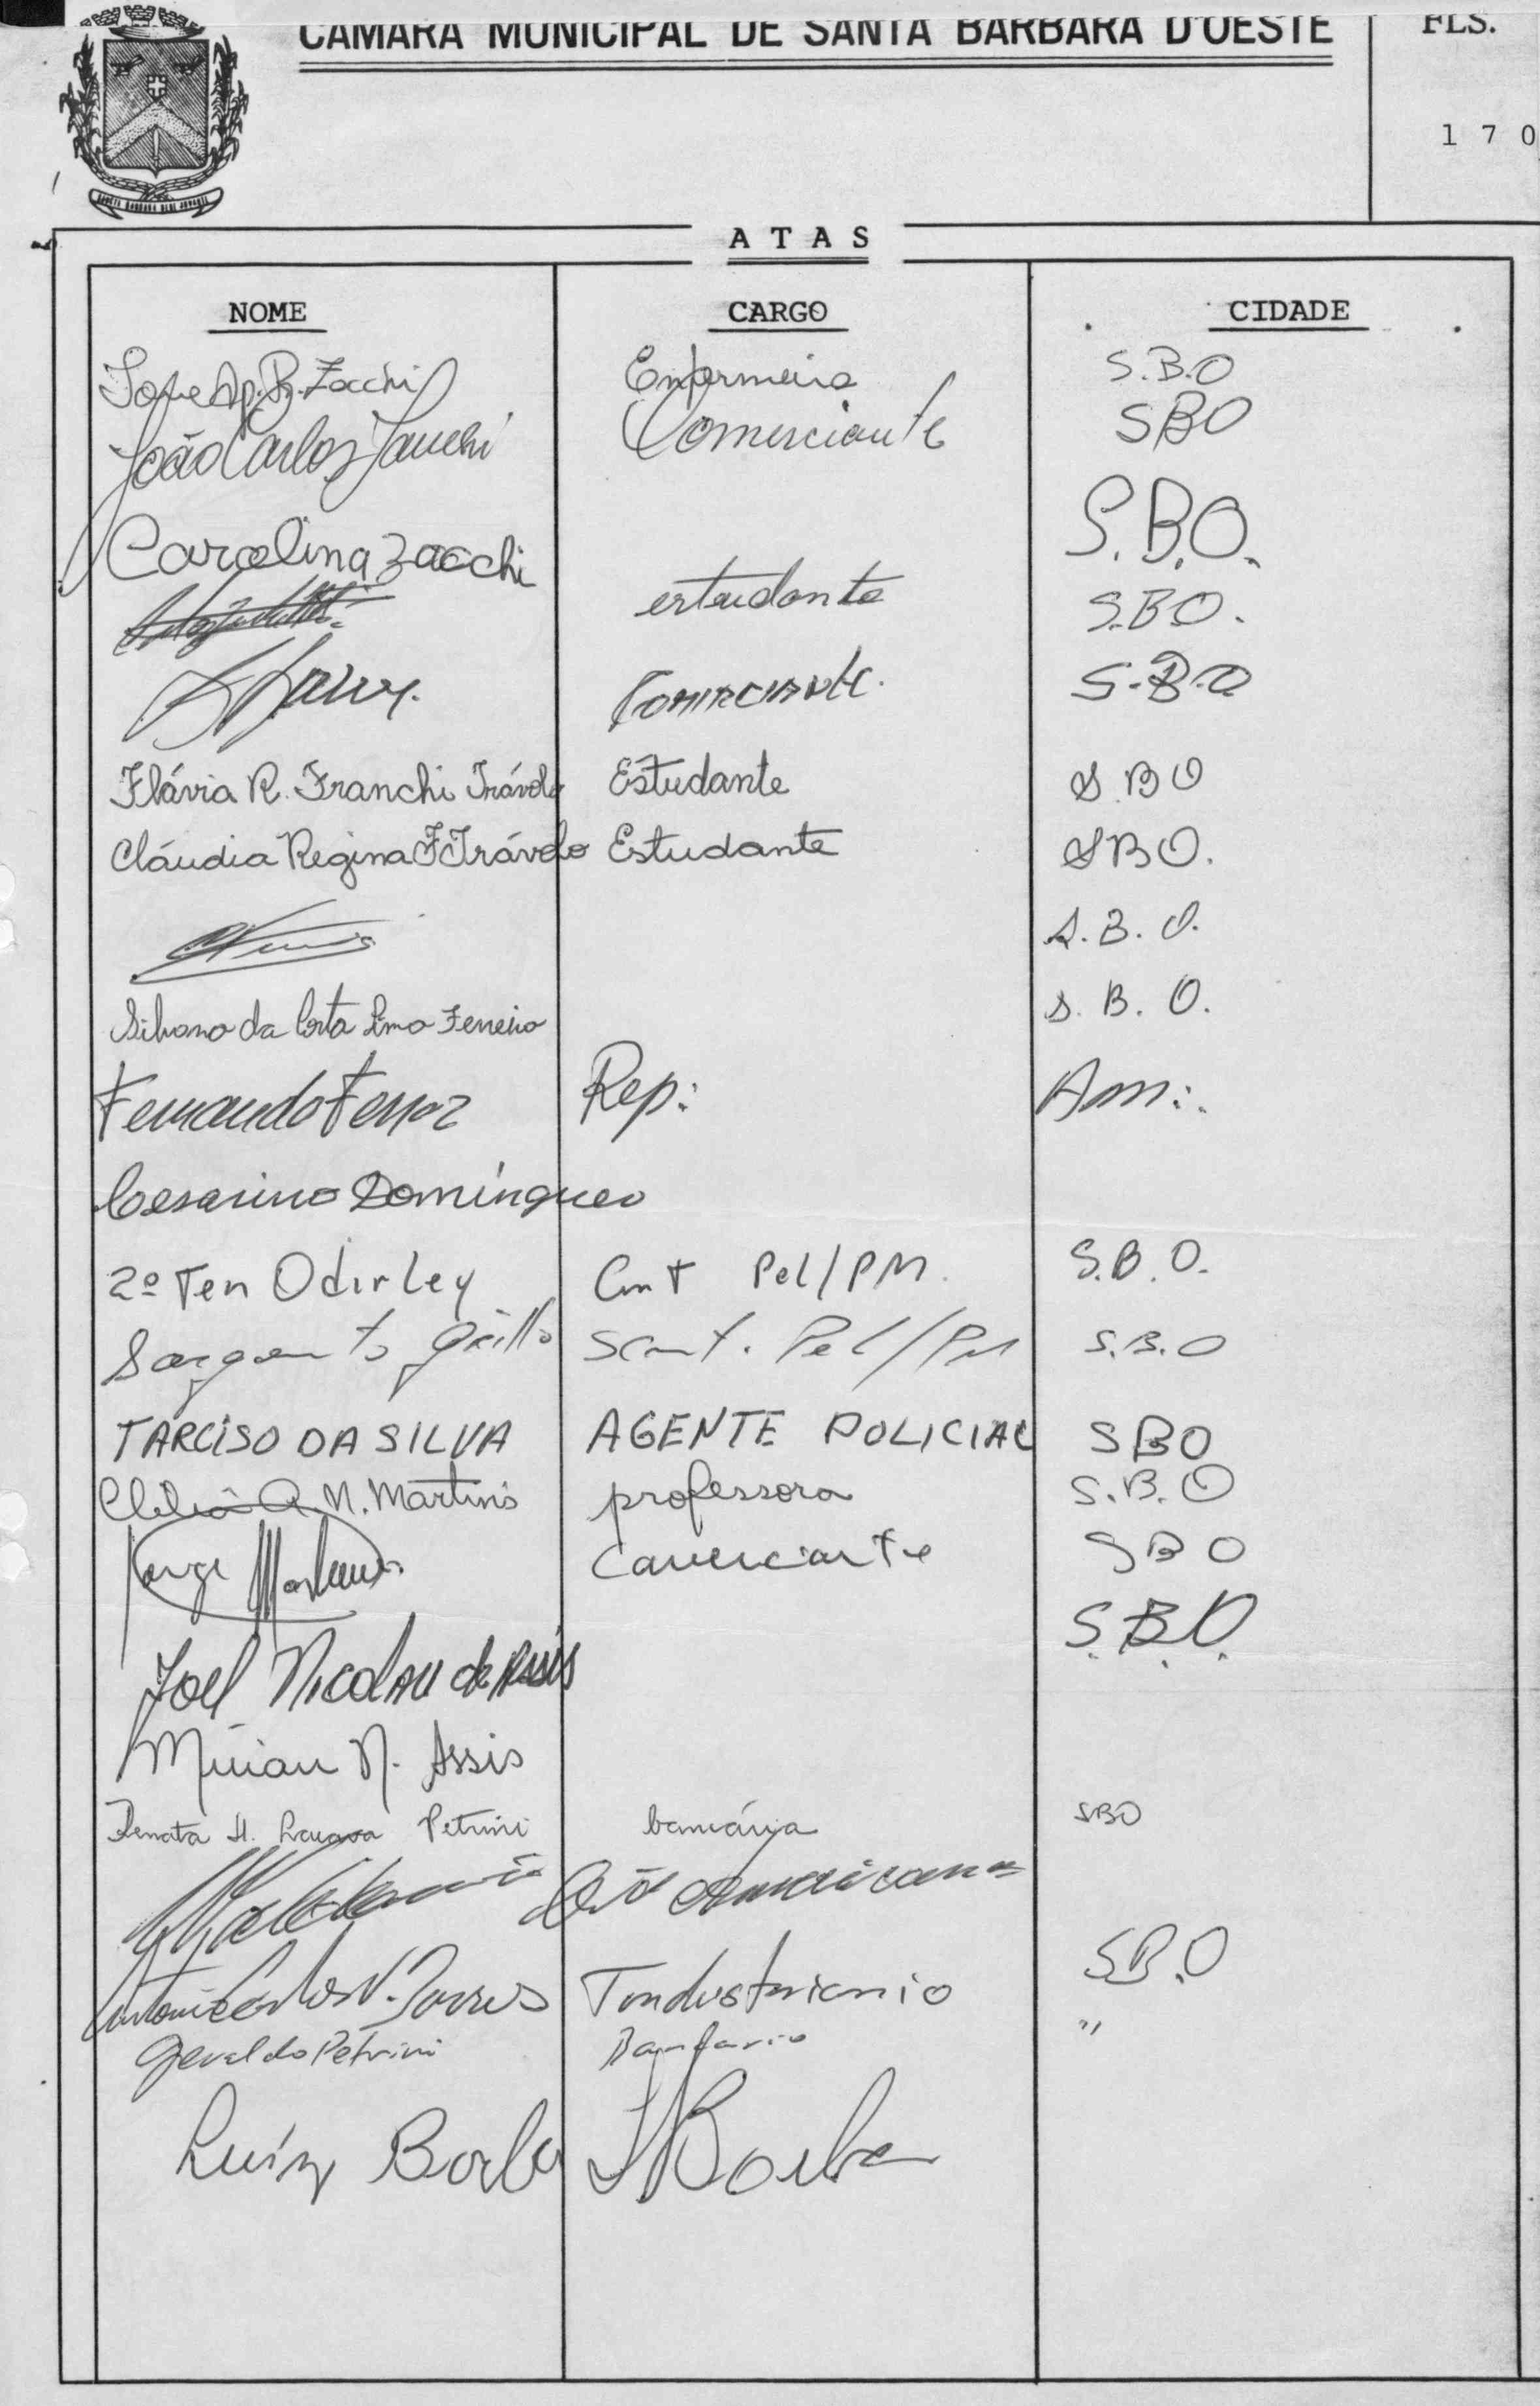 CÂMARA MUNICIPAL DE SANTA BÁRBARA D'OESTE
FLS.
170
ATAS
NOME CARGO CIDADE
Ap. R. Zacchi Enfermeira S.B.O
João Carlos Comerciante SBO
Carolina Zacchi S.B.O.
estudante S.B.O.
Comerciante. S.B.O
Flávia R. Franchi Trávolo Estudante S.B.O
Cláudia Regina F. Trávolo Estudante SBO.
S.B.O.
da Costa Lima Ferreira S.B.O.
Fernando Ferraz Rep: Am:.
Cesarino Domingues
2º Ten Odirley Cmt Pel/PM. S.B.O.
Sargento Grillo Scmt. Pel/PM S.B.O
TARCISO DA SILVA AGENTE POLICIAL SBO
Clélia A. M. Martins professora S.B.O
Jorge Martins Comerciante SBO
Joel Nicolau de Assis S.B.O.
Mirian N. Assis
Renata H. Petrini bancária SBO
Americana
Antonio Carlos V. Torres Industriario S.B.O
Geraldo Petrini Bancario "
Luiz Borba Borba